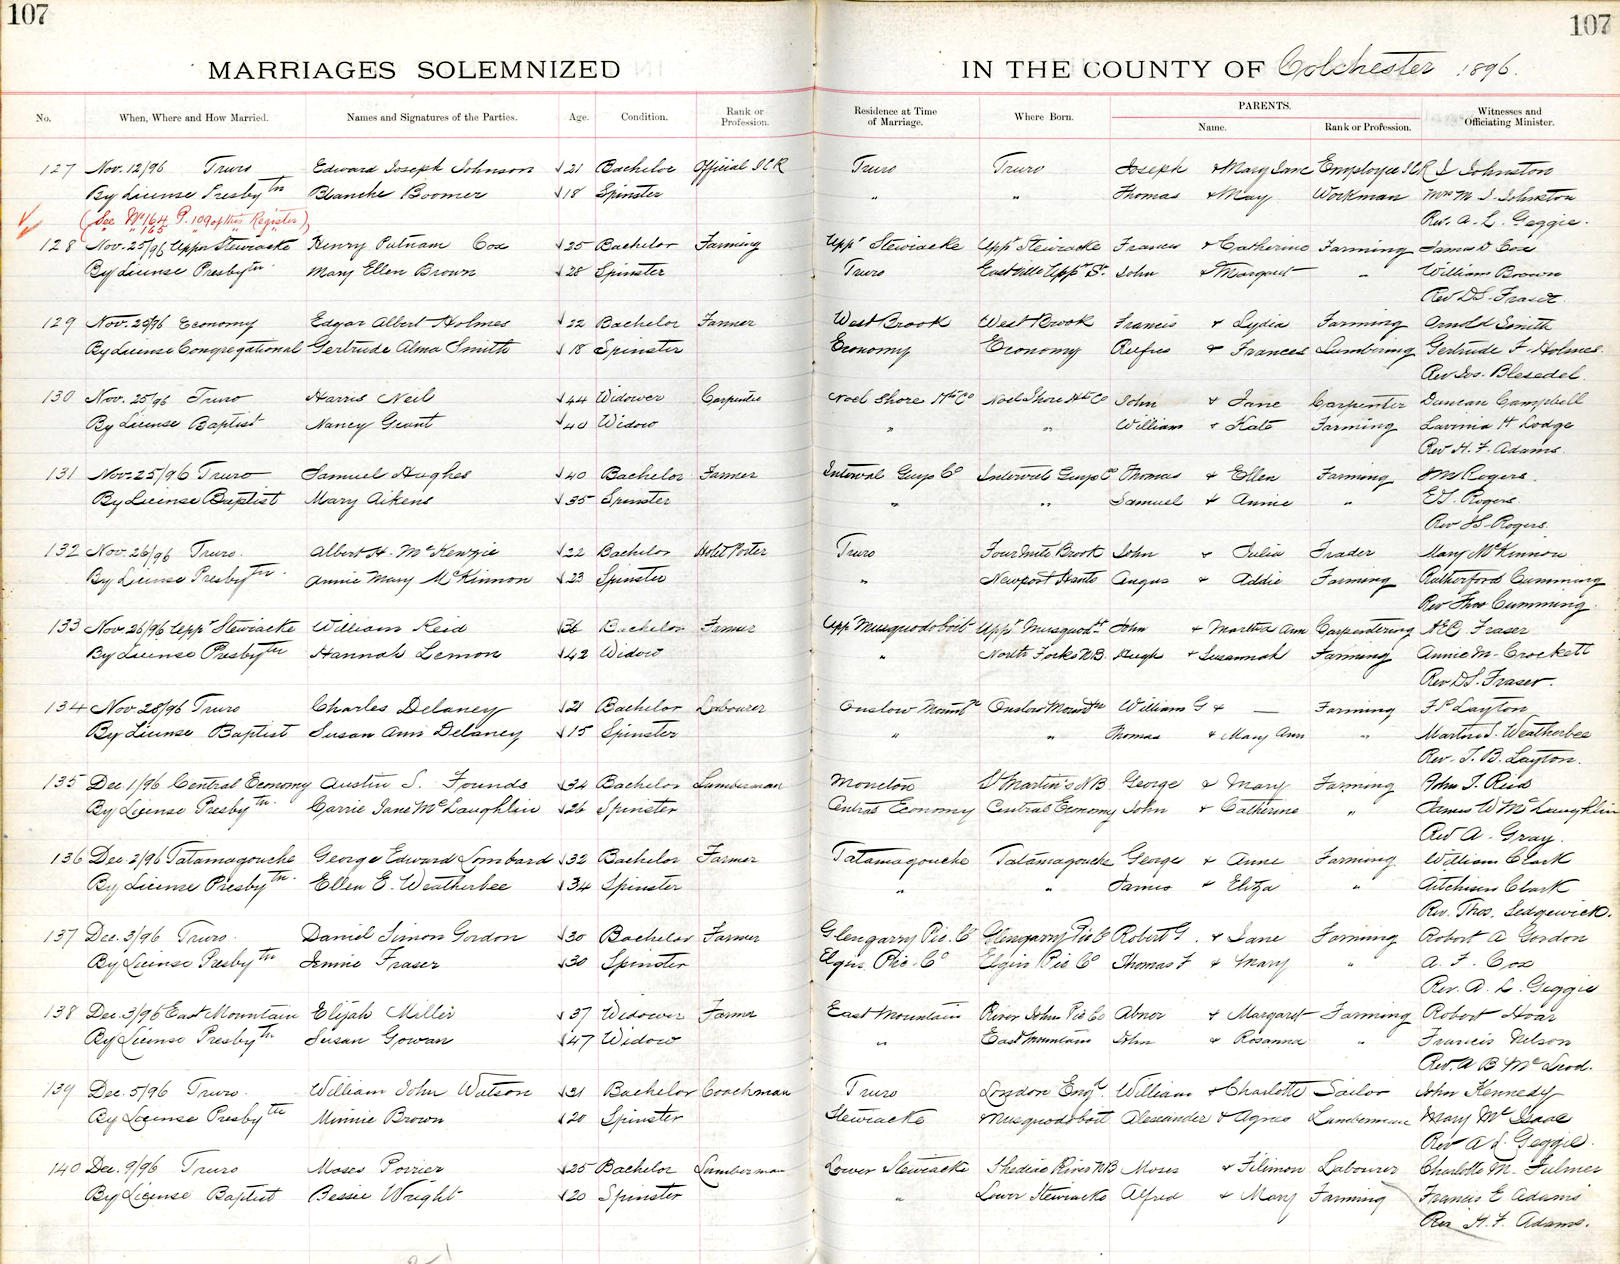 107
107
MARRIAGES SOLEMNIZED
IN THE COUNTY OF Colchester 1896.
No. When, Where and How Married. Names and Signatures of the Parties. Age. Condition. Rank or Profession. Residence at Time of Marriage. Where Born. PARENTS. Name. Rank or Profession. Witnesses and Officiating Minister.
127 Nov. 12/96 Truro Edward Joseph Johnson 21 Bachelor Official I.C.R Truro Truro Joseph & Mary Jane Employee I.C.R J Johnston
By License Presbytn Blanche Boomer 18 Spinster " " Thomas & May Workman Mrs M. J. Johnston
(See No 164 P. 109 of this Register)
" 165 " "
Rev. A. L. Geggie.
128 Nov. 25/96 Uppr Stewiacke Henry Putnam Cox 25 Bachelor Farming Uppr Stewiacke Uppr Stewiacke Francis & Catherine Farming James D Cox
By License Presbytn Mary Ellen Brown 28 Spinster Truro Eastville Uppr St. John & Margaret " William Brown
Rev D.S. Fraser.
129 Nov. 25/96 Economy Edgar Albert Holmes 22 Bachelor Farmer West Brook West Brook Francis & Lydia Farming Arnold Smith
By License Congregational Gertrude Alma Smith 18 Spinster Economy Economy Rufus & Frances Lumbering Gertrude F. Holmes.
Rev Jos. Blesedel.
130 Nov. 25/96 Truro Harris Neil 44 Widower Carpenter Noel Shore Hts Co Noel Shore Hts Co John & Jane Carpenter Duncan Campbell
By License Baptist Nancy Grant 40 Widow " " William & Kate Farming Lavinia H Lodge
Rev H. F. Adams.
131 Nov. 25/96 Truro Samuel Hughes 40 Bachelor Farmer Interval Guys Co Interval Guys Co Thomas & Ellen Farming Rogers.
By License Baptist Mary Aikens 35 Spinster " " Samuel & Annie " E.J. Rogers.
Rev Rogers.
132 Nov. 26/96 Truro. Albert H. McKenzie 22 Bachelor Hotel Porter Truro Four Mile Brook John & Julia Trader Mary McKinnon
By License Presbytn. Annie Mary McKinnon 23 Spinster " Newport Hants Angus & Addie Farming Rutherford Cumming
Rev Thos Cumming.
133 Nov. 26/96 Uppr Stewiacke William Reid 36 Bachelor Farmer Uppr Musquodoboit Uppr Musquodt John & Martha Ann Carpentering Fraser
By License Presbytn Hannah Lemon 42 Widow " North Forks N.B. Hugh & Susannah Farming Annie M. Crockett
Rev D.S. Fraser.
134 Nov. 28/96 Truro Charles Delaney 21 Bachelor Labourer Onslow Mountn Onslow Mountn William G & — Farming F P Layton
By License Baptist Susan Ann Delaney 15 Spinster " " Thomas & Mary Ann " Martin S. Weatherbee
Rev. J. B. Layton.
135 Dec 1/96 Central Economy Austin S. Founds 34 Bachelor Lumberman Moncton St Martin's N.B. George & Mary Farming John J. Reid
By License Presbytn. Carrie Jane McLaughlin 26 Spinster Central Economy Central Economy John & Catherine " James W McLaughlin
Rev A. Gray.
136 Dec. 2/96 Tatamagouche George Edward Lombard 32 Bachelor Farmer Tatamagouche Tatamagouche George & Anne Farming William Clark
By License Presbytn. Ellen E. Weatherbee 34 Spinster " " James & Eliza " Aitchison Clark
Rev. Thos. Sedgewick.
137 Dec. 3/96 Truro. Daniel Simon Gordon 30 Bachelor Farmer Glengarry Pic. Co Glengarry Pic Co Robert G. & Jane Farming Robert A Gordon
By License Presbytn Jennie Fraser 30 Spinster Elgin Pic. Co Elgin Pic Co Thomas F & Mary " A. F. Cox
Rev. A. L. Geggie
138 Dec. 3/96 East Mountain Elijah Miller 37 Widower Farmer East Mountain River John Pic Co Abner & Margaret Farming Robert Hoar
By License Presbytn. Susan Gowan 47 Widow " East Mountain John & Rosanna " Francis Nelson
Rev. A B McLeod.
139 Dec. 5/96 Truro. William John Watson 31 Bachelor Coachman Truro London Engd William & Charlotte Sailor John Kennedy
By License Presbytn Minnie Brown 20 Spinster Stewiacke Musquodoboit Alexander & Agnes Lumberman Mary McIsaac
Rev A L Geggie.
140 Dec. 9/96 Truro Moses Poirier 25 Bachelor Lumberman Lower Stewiacke Shediac River N.B Moses & Filimon Labourer Charlotte M. Fulmer
By License Baptist Bessie Wright 20 Spinster " Lower Stewiacke Alfred & Mary Farming Francis E Adams
Rev H. F. Adams.